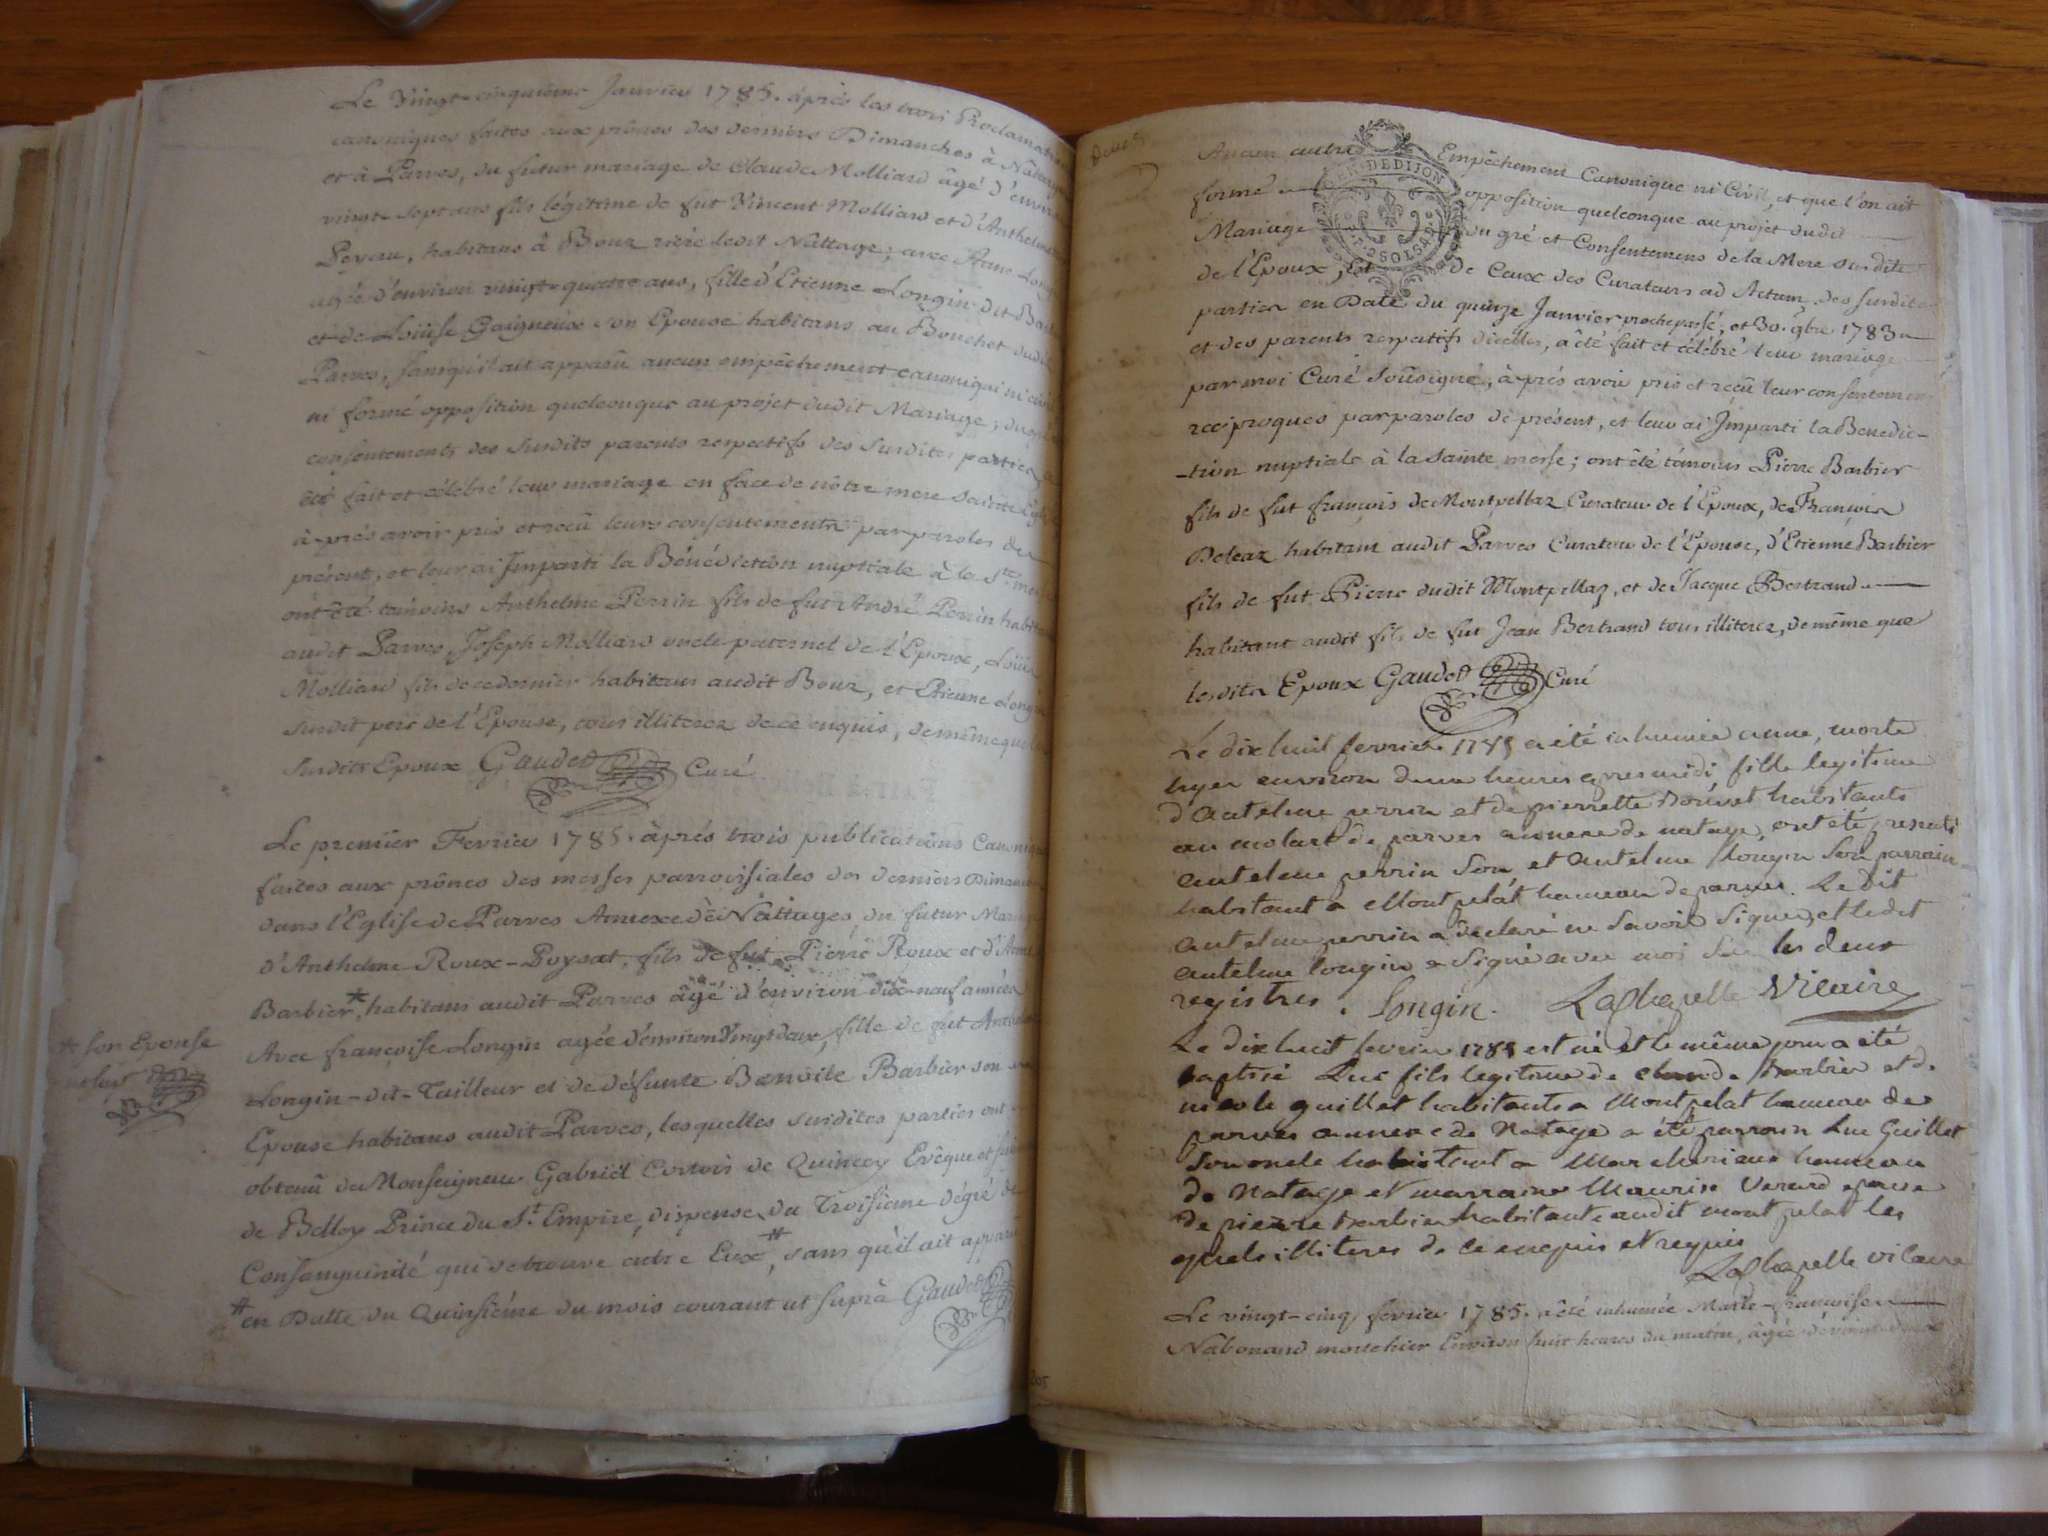 Le Vingt-cinquième Janvier 1785. après les trois Proclamations
canoniques faites aux prônes des derniers Dimanches à Nattages
et à Parves, du futur mariage de Claude Molliard âgé d'environ
vingt-sept ans fils légitime de fut Vincent Molliard et d'Anthelmette
habitans à Bour rière ledit Nattage; avec Anne Longin
agée d'environ vingt-quatre ans, fille d'Etienne Longin dit
et de Loüise Gaigneux son Epouse habitans au Bouchet dudit
Parves, sans qu'il ait apparû aucun empêchement canonique ni civil
ni formé opposition quelconque au projet dudit Mariage; du gré et
consentements des susdits parents respectifs des susdites parties, a
été fait et célébré leur mariage en face de nôtre mere sainte Eglise
après avoir pris et reçû leurs consentements par paroles de
présent, et leur ai Imparti la Bénédiction nuptiale à la Ste messe
ont été témoins Anthelme Perrin fils de fut André Perrin habitant
audit Parves, Joseph Molliard oncle paternel de l'Epoux, Loüis
Molliard fils de ce dernier habitans audit Bour, et Etienne Longin
susdit pere de l'Epouse, tous illiterez de ce enquis, de même que les
susdits Epoux Gaudet Curé
Le premier Fevrier 1785. àprés trois publications Canoniques
faites aux prônes des messes parroissiales des derniers Dimanches
dans l'Eglise de Parves Annexe de Nâttages, du futur Mariage
d'Anthelme Roux-Poysat, fils de fut Pierre Roux et d'Anne
Barbier,* habitans audit Parves âgé d'environ dix-neuf années
Avec françoise Longin agée d'environ Vingt deux, fille de fut Antoine
Longin-dit-Tailleur et de défunte Benoite Barbier son
Epouse habitans audit Parves, lesquelles susdites parties ont
obtenû de Monseigneur Gabriël Cortois de Quincey Evêque et
de Belley Prince du St. Empire, dispense du Troisieme dégré de
Consanguinité qui se trouve entre Eux#, sans qu'il ait apparû
# en Datte du Quinsiéme du mois courant ut suprà Gaudet
* son Epouse
Aucun autre Empêchement Canonique ni Civil, et que l'on ait
formé opposition quelconque au projet dudit
Mariage du gré et Consentemens de la Mere susdite
de l'Epoux, et de Ceux des Curateurs ad Actum des susdites
parties en Date du quinze Janvier proche passé, et 30. 9bre 1783
et des parents respectifs d'icelles, a été fait et célébré leur mariage
par moi Curé soûsigné, àprés avoir pris et reçû leur consentemens
reciproques par paroles de présent, et leur ai Imparti la Benedic-
-tion nuptiale à la sainte messe; ont été témoins Pierre Barbier
fils de fut françois de Montpellaz Curateur de l'Epoux, de François
Deleaz habitant audit Parves Curateur de l'Epouse, d'Etienne Barbier
fils de fut Pierre dudit Montpellaz, et de Jacque Bertrand
habitant audit fils de fut Jean Bertrand tous illiterez, de même que
lesdits Epoux Gaudet Curé
GEN. DE DIJON
Le dix huit fevrier 1785 a été inhumée anne, morte
hyer environ deux heures apres midi fille legitime
d'Antelme perrin et de pierrette habitants
au molart de parves annexe de natage, ont été presents
antelme perrin son et antelme longin son parrain
habitant a Mont pelat hameau de parves. Le dit
antelme perrin a declaré ne savoir signer, et ledit
antelme longin a signé avec moi sur les deux
registres. Longin. Lachapelle Vicaire
Le dix huit fevrier 1785 est né et le même jour a été
baptisé Luc fils legitime de claude barbier et de
nicole guillet habitants a Mont pelat hameau de
parves annexe de Natage a été parrain Luc Guillet
son oncle habitant a hameau
de Natage et marraine Maurise Verard epouse
de pierre barbier habitante audit mont pelat les
quels illiteres de ce enquis et requis
Lachapelle vicaire
Le vingt-cinq fevrier 1785. a été inhumée Marie-françoise
Nabonand morte hier Environ huit heures du matin, âgée d'
205